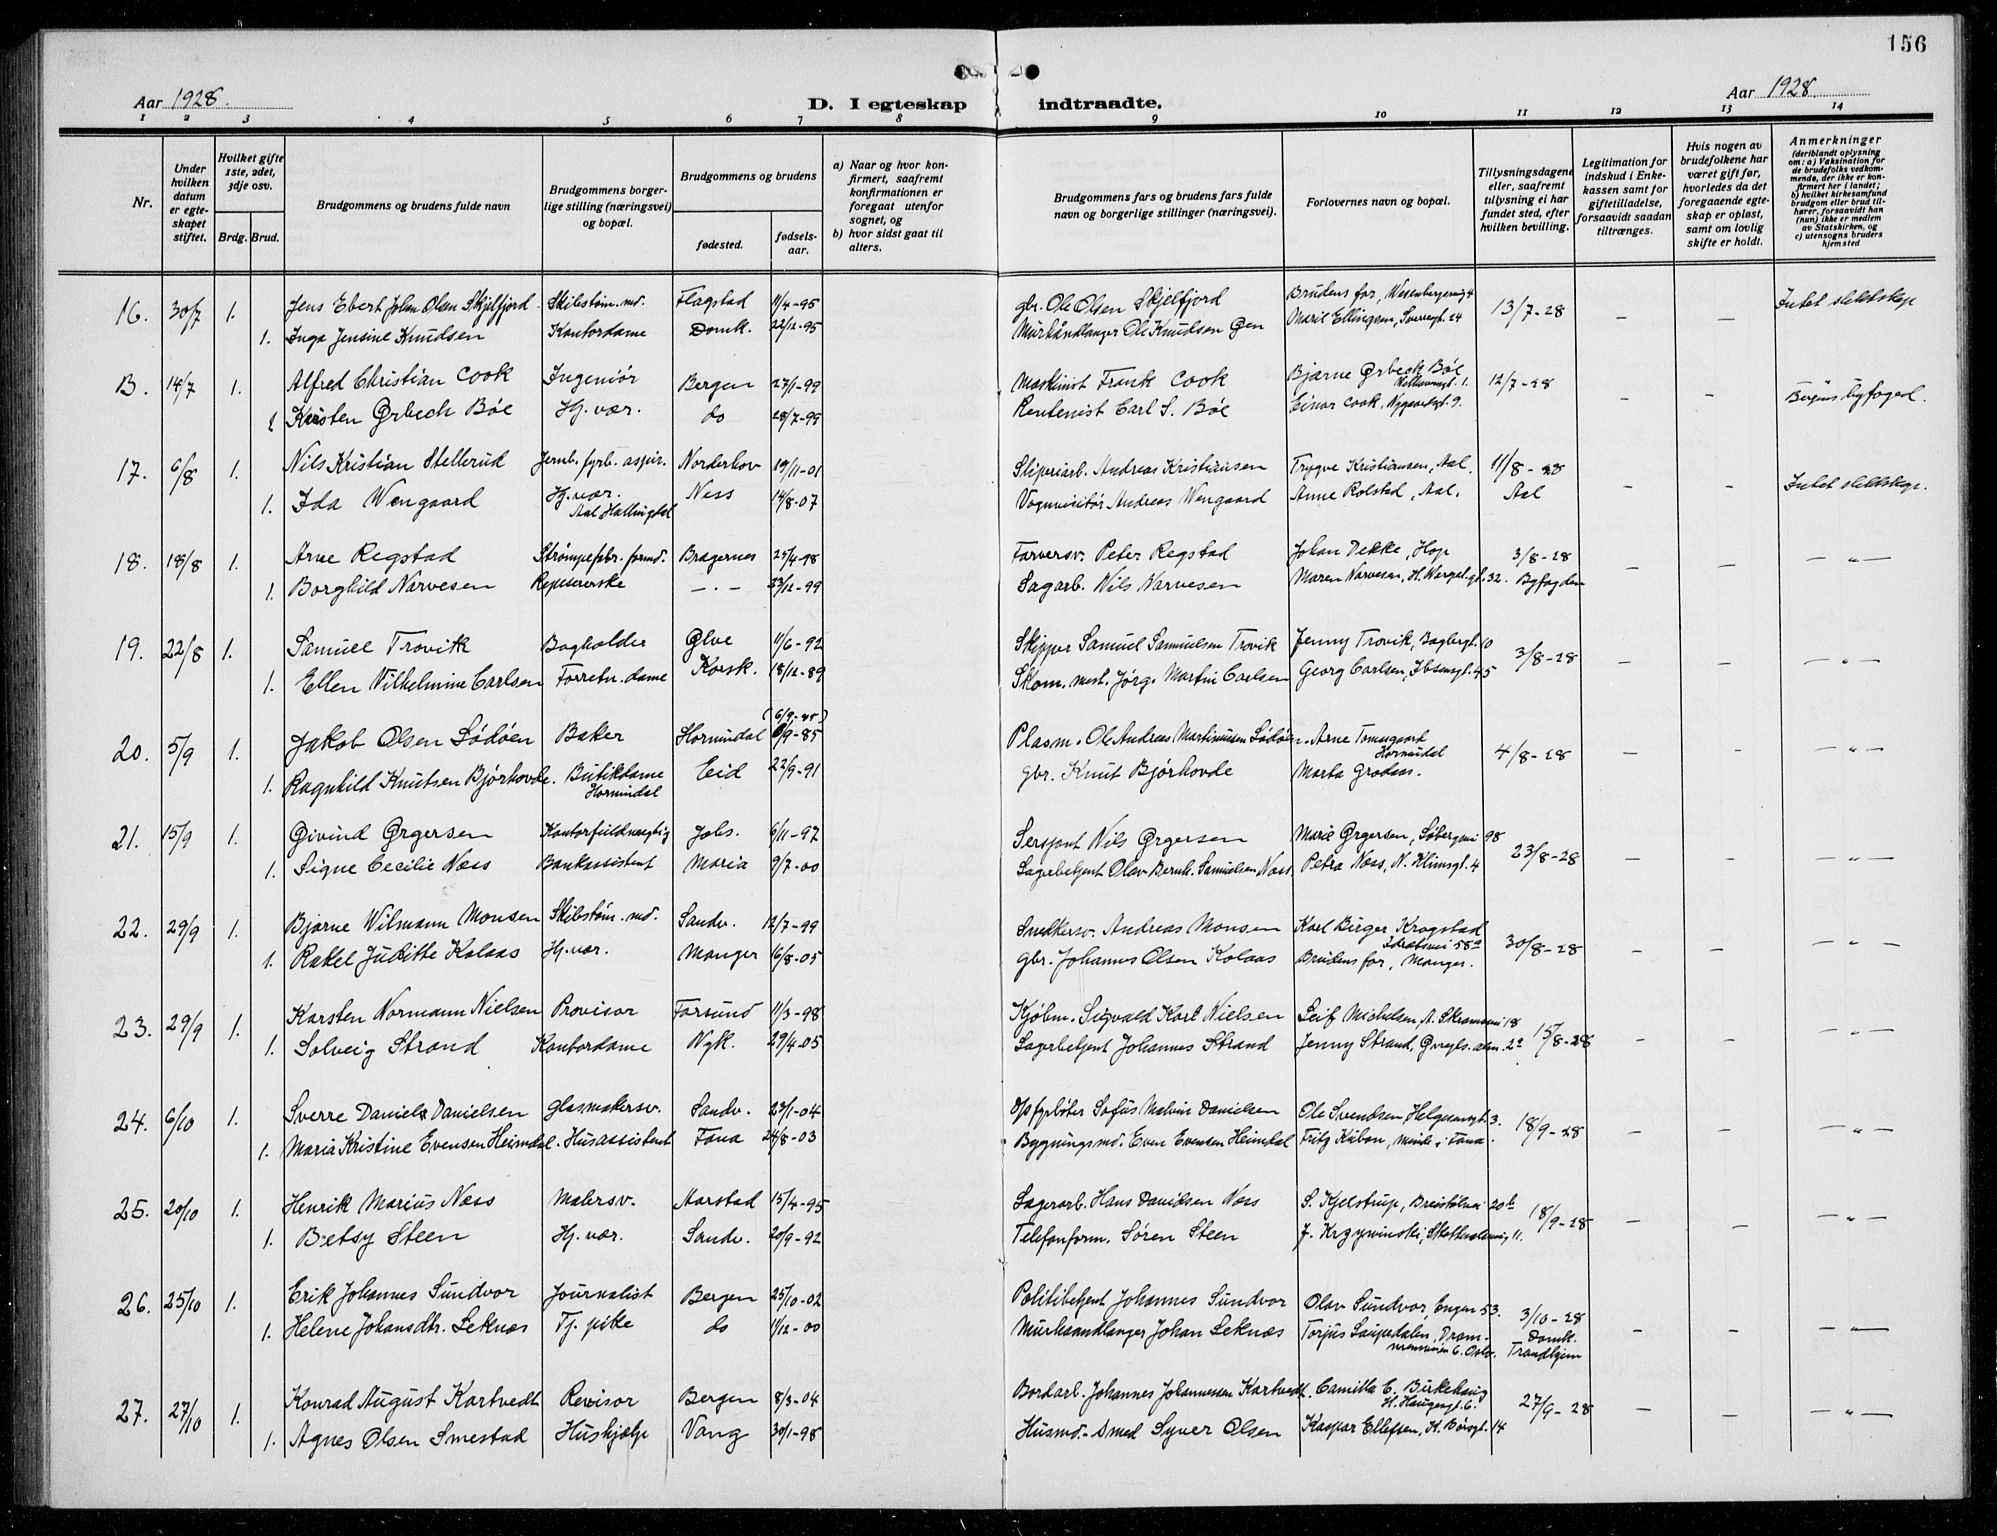 156
Aar 1928.
D. I egteskap indtraadte.
Aar 1928.
1 2 3 4 5 6 7 8 9 10 11 12 13 14
Nr.
Under hvilken datum er egteskapet stiftet.
Hvilket gifte 1ste, 2det, 3dje osv.
Brdg. Brud.
Brudgommens og brudens fulde navn
Brudgommens borgerlige stilling (næringsvei) og bopæl.
Brudgommens og brudens
fødested.
fødselsaar.
a) Naar og hvor konfirmert, saafremt konfirmationen er foregaat utenfor sognet, og
b) hvor sidst gaat til alters.
Brudgommens fars og brudens fars fulde navn og borgerlige stillinger (næringsvei).
Forlovernes navn og bopæl.
Tillysningsdagene eller, saafremt tillysning ei har fundet sted, efter hvilken bevilling.
Legitimation for indskud i Enkekassen samt for giftetilladelse, forsaavidt saadan tiltrænges.
Hvis nogen av brudefolkene har været gift før, hvorledes da det foregaaende egteskap er opløst, samt om lovlig skifte er holdt.
Anmerkninger (deriblandt oplysning om: a) Vaksination for de brudefolks vedkommende, der ikke er konfirmert her i landet; b) hvilket kirkesamfund brudgom eller brud tilhører, forsaavidt han (hun) ikke er medlem av Statskirken, og c) utensogns bruders hjemsted
16. 30/7 1. Jens Ebert Johan Olsen Skjelfjord Skibstøm.md. Flagstad 11/4-95 gbr. Ole Olsen Skjelfjord Brudens far, Wesenbergsvig 4 13/7-28 – – Intet slektskap
1. Inga Jensine Knudsen Kontordame Domk. 22/12-95 Murhåndlanger Ole Knudsen Marie Ellingsen, Sverresgt. 24
B. 14/7 1. Alfred Christian Cook Ingeniør Bergen 27/1-99 Maskinist Frank Cook Bjarne Ørbech Bøe 12/7-28 – – Bergens byfoged.
1 Kirsten Ørbech Bøe Hj. vær. do 28/7-99 Rentenist Carl S. Bøe Einar Cook, Nygaardsgt. 9.
17. 6/8 1. Nils Kristian Stellerud Jernb. fyrb. aspir. Norderhov 19/11-01 Sliperiarb. Andreas Kristiansen Trygve Kristiansen, Aal. 11/8-28 – – Intet slektskap.
1. Ida Wengaard Hj. vær. Aal Hallingdal Ness 14/8-07 Vognvisitør Andreas Wengaard Anne Rolstad, Aal. Aal
18. 18/8 1. Arne Regstad Strømpefabr. formd. Bragernes 25/4-98 Farversv. Peter Regstad Johan Dekke, Hop 3/8-28 – – – „ –
1. Borghild Narvesen Repeserske –.– 23/12-99 Sagarb. Nils Narvesen Maren Narvesen, H. Wergel. gt. 32. Byfogden
19. 22/8 1. Samuel Trovik Bogholder Ølve 11/6-92 Skipper Samuel Samuelsen Trovik Jenny Trovik, Bagbergt. 10 3/8-28 – – – „ –
1. Ellen Vilhelmine Carlsen Forretn. dame Korsk. 18/12-89 Skom. mest. Jørg. Martin Carlsen Georg Carlsen, Ibsensgt. 45
20. 5/9 1. Jakob Olsen Lødøen Baker Hornindal 6/9-85 Plasm. Ole Andreas Martinusen Lødøen. Arne Tomasgaard Hornindal 4/8-28 – – – „ –
1. Ragnhild Knutsen Bjørhovde. Butikdame Hornindal Eid 22/9-91 gbr. Knut Bjørhovde Marta Grodaas.
21. 15/9 1. Øivind Ørgersen Kontorfuldmegtig Johs. 6/11-97 Sersjant Nils Ørgersen Marie Ørgersen, 98 23/8-28 – – – „ –
1. Signe Cecilie Næss Bankassistent Maria 9/7-00 Lagerbetjent Olav Bernh. Samuelsen Næss. Petra Næss, N. Klimsgt. 4
22. 29/9 1. Bjarne Wilmann Monsen Skibstøm. md. Sandv. 12/7-99 Snekkersv. Andreas Monsen Karl Birger Krogstad Idrætsvei 58a 30/8-28 – – – „ –
1. Rakel Juditte Kolaas Hj. vær. Manger 16/8-05 gbr. Johannes Olsen Kolaas Brudens far, Manger.
23. 29/9 1. Karsten Normann Nielsen Provisor Farsund 11/3-98 Kjøbm. Sigvald Karl Nielsen Leif Michelsen, A. Skramsvei 18 15/8-28 – – – „ –
1. Solveig Strand Kontordame Nyk. 29/4-05 Lagerbetjent Johannes Strand Jenny Strand, alm. 2a
24. 6/10 1. Sverre Daniels Danielsen Glasmakersv. Sandv. 23/1-04 Opfyrbøter Sofus Malvin Danielsen Ole Svendsen Helgesensgt. 3. 18/9-28 – – – „ –
1. Maria Kristine Evensen Heimdal. Husassistent Fana 24/8-03 Bygningsmd. Even Evensen Heimdal Fritz Kübon, Minde i Fana.
25. 20/10 1. Henrik Marius Næss Malersv. Aarstad 15/4-95 Lagerarb. Hans Danielsen Næss S. Kjelstrup, Breistølvei 20b 18/9-28 – – – „ –
1. Betsy Steen Hj. vær. Sandv. 20/9-92 Telefonform. Søren Steen J. Krzywinski, 11.
26. 25/10 1. Erik Johannes Sundvor Journalist Bergen 25/10-02 Politibetjent Johannes Sundvor Olav Sundvor, Engen 53. 3/10-28 – – – „ –
1. Helene Johansdtr. Leknes Tj. pike do 1/12-00 Murhaandlanger Johan Leknæs Torjus Laupedalen, Drammensveien 6. Oslo. Domk. Trondhjem
27. 27/10 1. Konrad August Kartvedt Revisor Bergen 8/3-04 Bordarb. Johannes Johannessen Kartvedt. Camilla E. Birkehaug H. Haugesgt. 6. 27/9-28 – – – „ –
1. Agnes Olsen Smestad Hushjælp Vang 30/1-98 Husmd.-smed Syver Olsen Kaspar Ellefsen, K. Børsgt. 14